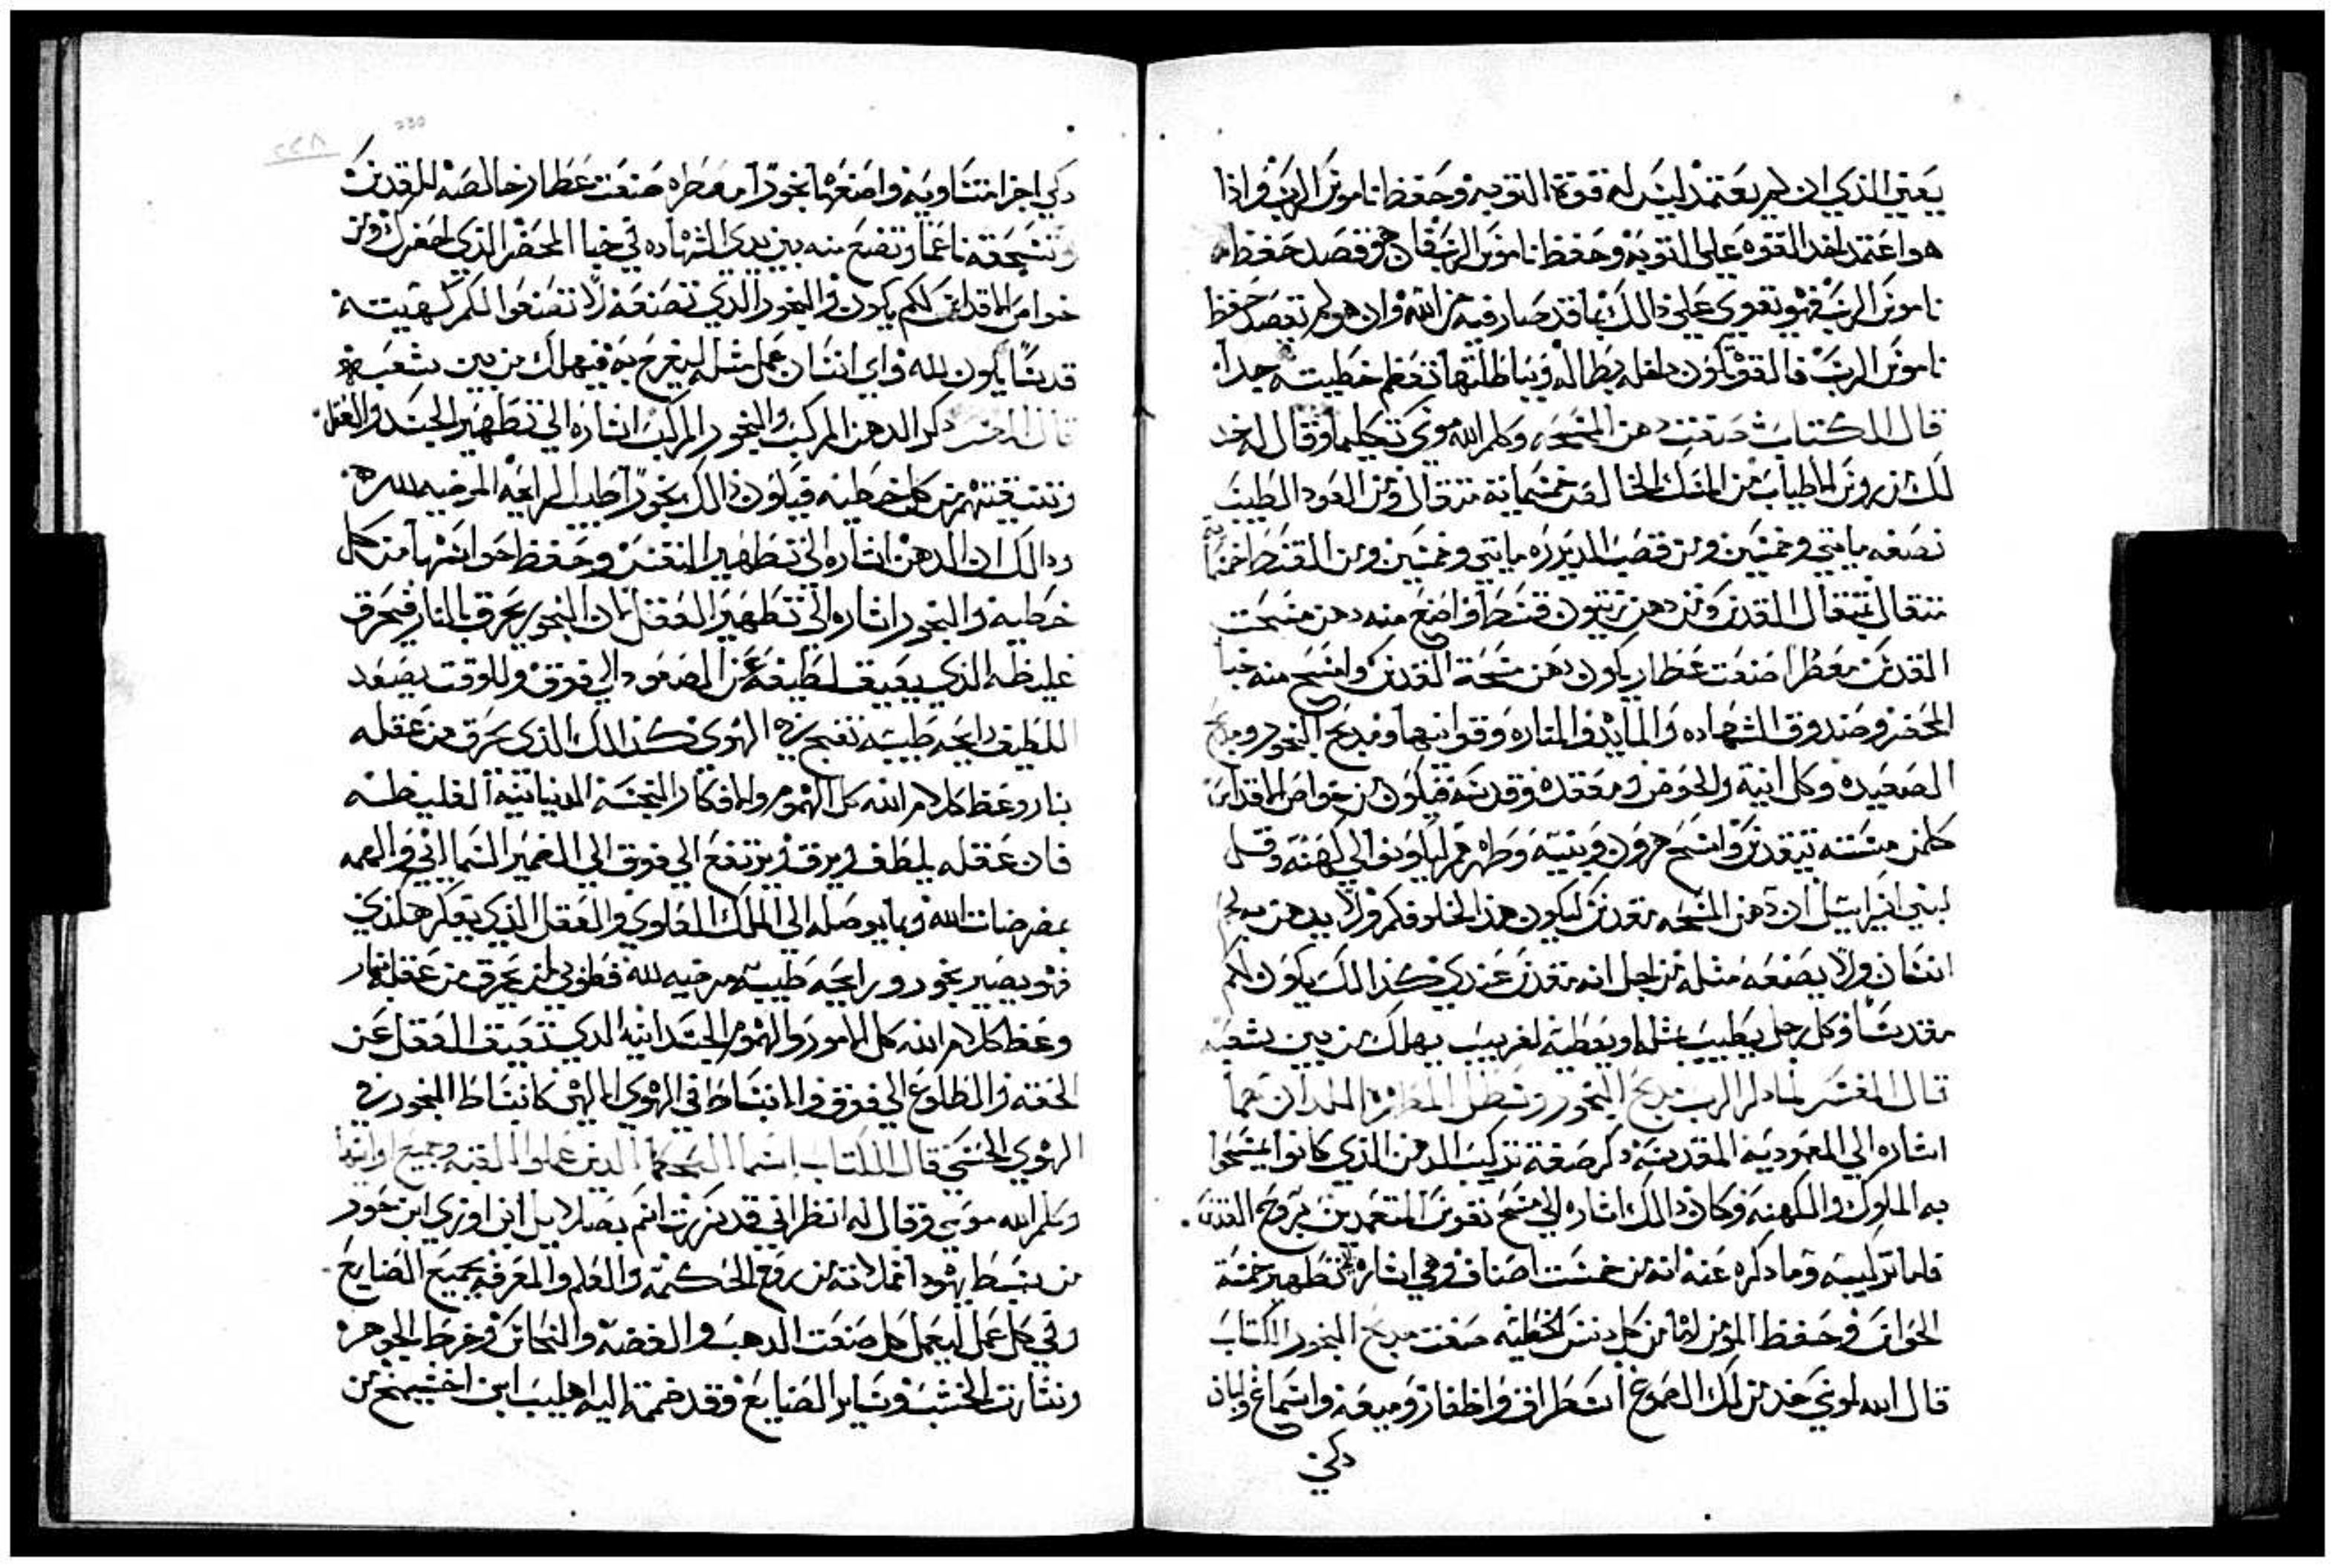 يعني الذي ان لم يعتمد ليس له قوة التوبه وحفظ ناموس الرب واذا
هو اعتمد اخد القوه على التوبه وحفظ ناموس الرب فان هو قصد حفظ
ناموس الرب فهو يقوي على دالك بما قد صار فيه من الله وان هو لم يقصد حفظ
ناموس الرب فالقوه تكون داخله بطاله وبباطلتها تعظم خطيته جدا
قال الكتاب صنعت دهن المسحه وكلم الله موسى تكليما وقال له خد
لك من روس الاطياب من المسك الخالص خمسماية متقال ومن العود الطيب
نصفه مايتي وخمسين ومن قصب الدريره مايتي وخمسين ومن القسط خمسماية
متقال بمتقال القدس ومن دهن زيتون قسط واصنع منه دهن مسحت
القدس معطرا صنعت عطار يكون دهن مسحة القدس وامسح منه خبا
المحضر وصندوق الشهاده والمايده والمناره وقوانيها ومدبح البخور ومدبح
الصعيده وكل انيته والحوض ومقعده وقدسه فيكون من خواص الاقداس
كلمن مسته يتقدس وامسح هرون وبنيه وطهرهم ليكونوا لي كهنه وقل
لبني اسراييل ان دهن المسحه مقدس ليكون هذا لخلوفكم ولا يدهن به لحم
انسان ولا يصنعه مثله من اجل انه مقدس عندي كذالك يكون لكم
مقدسا وكل رجل يطيب مثله او يعطيه لغريب يهلك من بين شعبه
قال المفسر لما دكر الرب مدبح البخور وسطل المطهره اللدان هما
اشاره الي المعموديه المقدسه دكر صفة تركيب الدهن الذي كانوا يمسحوا
به الملوك والكهنه وكان دالك اشاره الي مسح نفوس المتعمدين بروح القدس
فاما تركيبه وما دكره عنه انه من خمست اصناف وهي اشاره الي تطهير خمسة
الحواس وحفظ المومن لها من كل دنس الخطيه صنعت مدبح البخور الكتاب
قال الله لموسى خد من لك الصموغ اسطراق واظفار وميعه واسماغ ولبان
دكي
دكي اجزا متساويه واصنعها بخورا معطره صنعت عطار خالصه للقدس
وتسحقه ناعما وتضع منه بين يدي الشهاده في خبا المحضر الذي احضرك ومن
خواص الاقداس لكم يكون والبخور الدي تصنعه لا تصنعوا لكم كهيته
قدسا يكون لله واي انسان عمل مثله ليفرح به فيهلك من بين شعبه
قال المفسر دكر الدهن المركب والبخور المركب اشاره الي تطهير الجسد والعقل
وتنقيتهم من كل خطيه فيكون دالك بخورا طيب الرايحه المرضيه لله
ودالك ان الدهن اشاره الي تطهير النفس وحفظ حواسها من كل
خطيه والبخور اشاره الي تطهير العقل لان البخور يحرق بالنار فتحرق
غليظه الذي يعيق لطيفه عن الصعود الي فوق وللوقت يصعد
اللطيف رايحه طيبه تفيح في الهوي كذالك الذي يحرق من عقله
بنار وعظ كلام الله كل الهموم والافكار النجسه الدنياتيه الغليظه
فان عقله يلطف ويرق ويرتفع الي فوق الي الضمير السمااني والهمه
بمرضات الله وبما يوصله الي الملك العلوي والعقل الذي يفكر هكذي
فهو يصير بخور ورايحه طيبه مرضيه لله فطوبي لمن يحرق من عقله بنار
وعظ كلام الله كل الامور والهموم الجسدانيه الدي تعيق العقل عن
الخفه والطلوع الي فوق والانبساط في الهوي الالهي كانبساط البخور في
الهوي الحسي قال الكتاب اسما الحكما الدين عملوا القبه وجميع اوانيها
وكلم الله موسى وقال له انظر اني قد كررت اسم بصلاييل ابن اوري ابن حور
من سبط يهودا مملاته من روح الحكمه والعلم والمعرفه بجميع الصنايع
وفي كل عمل ليعمل كل صنعت الدهب والفضه والنحاس وخرط الجوهر
ونشارت الخشب وساير الصنايع وقد ضممت اليه اهليب ابن اخسيمخ من